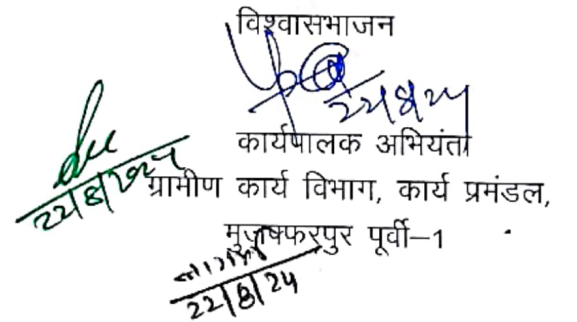 विश्वासभाजन
22/8/24
कार्यपालक अभियंता
22/8/2024
ग्रामीण कार्य विभाग, कार्य प्रमंडल,
मुजफ्फरपुर पूर्वी–1
22/8/24